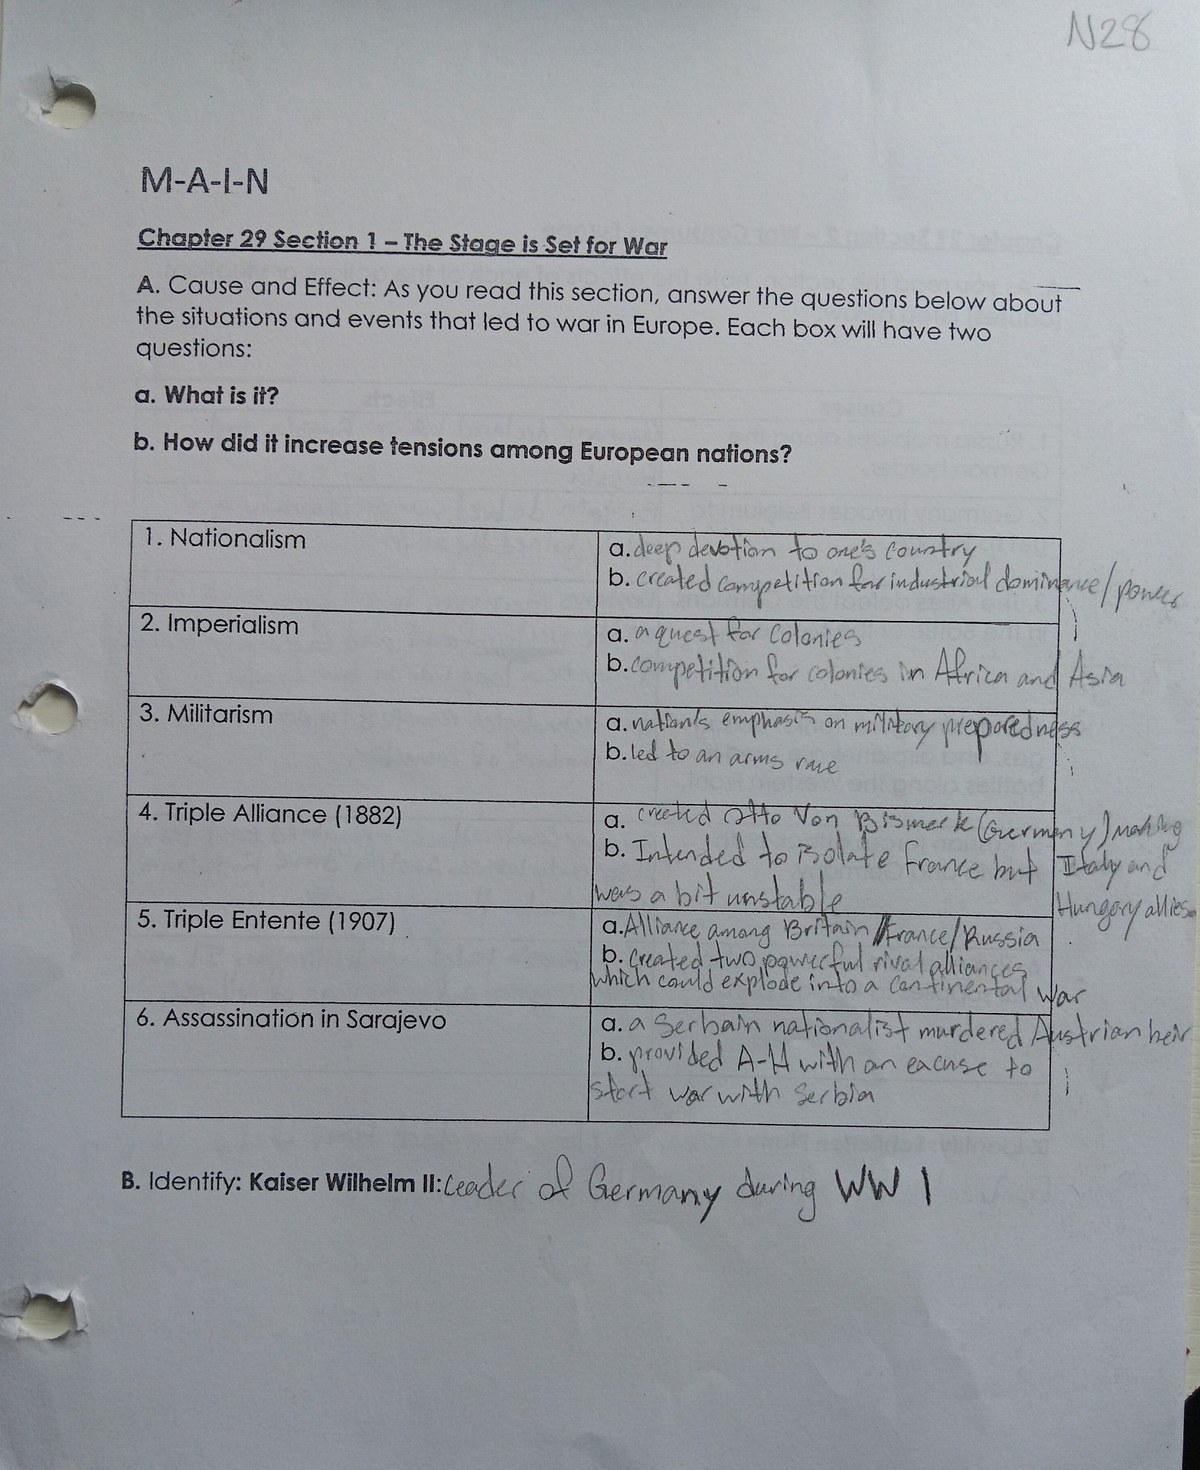 N28
M-A-I-N
Chapter 29 Section 1 – The Stage is Set for War
A. Cause and Effect: As you read this section, answer the questions below about
the situations and events that led to war in Europe. Each box will have two
questions:
a. What is it?
b. How did it increase tensions among European nations?
1. Nationalism
a. deep devotion to one's country
b. created competition for industrial dominance/power
2. Imperialism
a. a quest for colonies
b. competition for colonies in Africa and Asia
3. Militarism
a. nation's emphasis on military preparedness
b. led to an arms race
4. Triple Alliance (1882)
a. created Otto Von Bismark (Germany) making
Italy and
Hungary allies
b. Intended to isolate France but
was a bit unstable
5. Triple Entente (1907)
a. Alliance among Britain/France/Russia
b. created two powerful rival alliances
which could explode into a continental war
6. Assassination in Sarajevo
a. a Serbain nationalist murdered Austrian heir
b. provided A-H with an excuse to
start war with Serbia
B. Identify: Kaiser Wilhelm II: Leader of Germany during WW 1